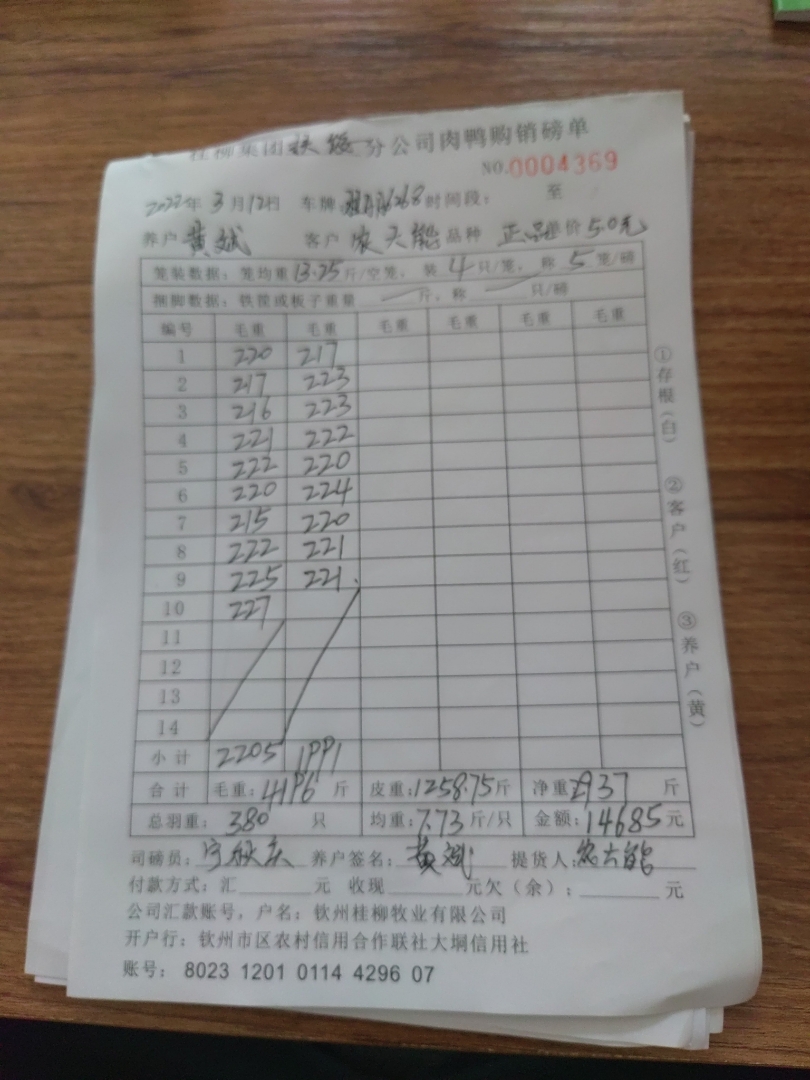 桂柳集团扶绥分公司肉鸭购销磅单
NO.0004369
2022年3月12日 车牌: 6268 时间段: 至
养户 黄斌 客户 农天能 品种 正品 单价 5.0元
笼装数据: 笼均重13.25斤/空笼, 装4只/笼, 称5笼/磅
捆脚数据: 铁筐或板子重量 斤, 称 只/磅
编号 毛重 毛重 毛重 毛重 毛重 毛重
1 220 217
2 217 223
3 216 223
4 221 222
5 222 220
6 220 224
7 215 220
8 222 221
9 225 221
10 227
11
12
13
14
小计 2205 1991
合计 毛重: 4196 斤 皮重: 1258.75斤 净重 2937 斤
总羽重: 380 只 均重: 7.73斤/只 金额: 14685元
司磅员: 养户签名: 黄斌 提货人: 农天能
付款方式: 汇 元 收现 元欠(余): 元
公司汇款账号, 户名: 钦州桂柳牧业有限公司
开户行: 钦州市区农村信用合作联社大垌信用社
账号: 8023 1201 0114 4296 07
①存根(白) ②客户(红) ③养户(黄)